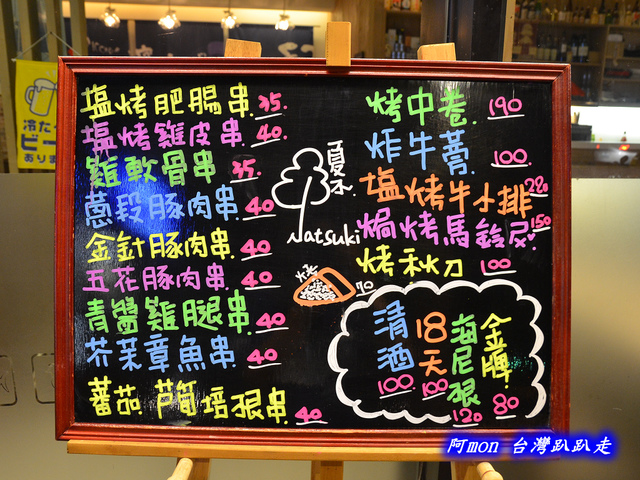 塩烤肥腸串 35.
塩烤雞皮串 40.
雞軟骨串 35.
蔥段豚肉串 40
金針豚肉串 40
五花豚肉串 40
青醬雞腿串 40
芥茉章魚串 40
蕃茄蘆筍培根串 40
夏木
Natsuki
70
烤中卷 190
炸牛蒡 100.
塩烤牛小排 280
焗烤馬鈴尸 150
烤秋刀 100
清酒 100
18天 100
海尼根 120
金牌 80
冷たい
ビール
あります
阿mon 台灣趴趴走